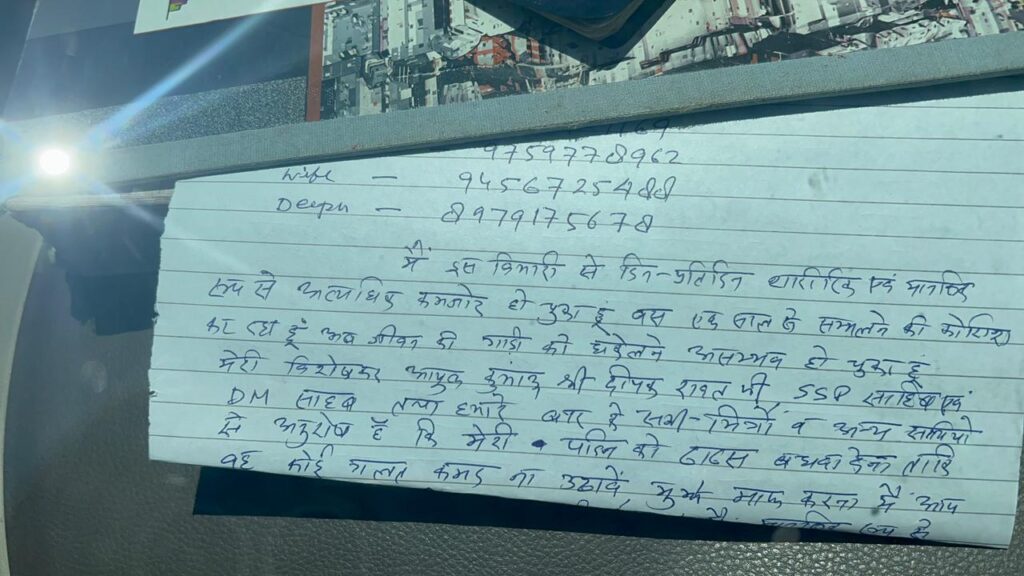 9759778962
Wife - 9456725488
Deepu - 8979175678
मैं इस बिमारी से दिन-प्रतिदिन शारिरिक एवं मानसिक
रूप से अत्याधिक कमजोर हो चुका हूं बस एक साल से सम्भलने की कोशिश
कर रहा हूं अब जीवन की गाडी को धकेलने असम्भव हो चुका हूं
मेरी विशेषकर आयुक्त कुमाऊं श्री दीपक रावत जी, SSP साहिब एवं
DM साहब तथा हमारे सभी-मित्रों व अन्य साथियो
से अनुरोध है कि मेरी पत्नि को ढाढस बधवा देना ताकि
वह कोई गलत कमद ना उठावें मुझे माफ करना मैं आप
रूप से